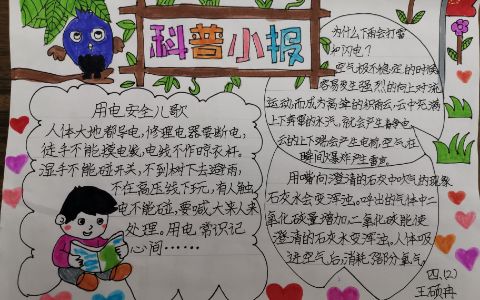 科普小报
用电安全儿歌
人体大地都导电,修理电器要断电,
徒手不能摸电线,电线不作晾衣杆。
湿手不能碰开关,不到树下去避雨,
不在高压线下玩,有人触
电不能碰,要喊大来人来
处理。用电常识记
心间……
为什么下雨会打雷
和闪电?
空气极不稳定的时候
容易发生强烈的向上对流
运动而成为高耸的积雨云,云中充满
上下奔雾的水汽,就会产生静电
云的上下端会产生电荷,空气在
瞬间爆炸产生雷鸣
用嘴向澄清的石灰中吹气的现象
石灰水会变浑浊。呼出的气体中二
氧化碳量增加,二氧化碳能使
澄清的石灰水变浑浊。人体吸
进空气后,消耗了部分氧气。
四.(2)
王硕冉